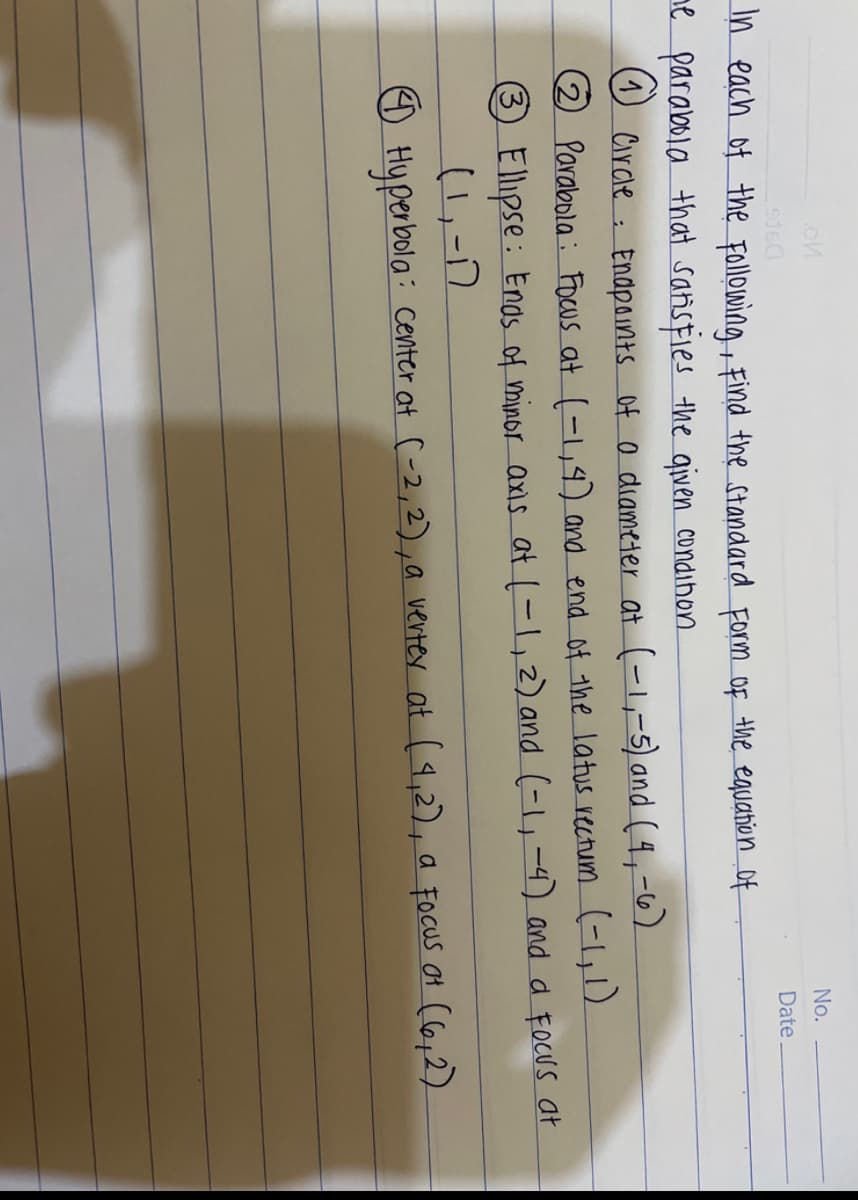 No.
Date
In each of the following, Find the standard Form of the equation of
parabola that satisfies the given condition
① Circle : Endpoints of a diameter at (-1,-5) and (4,-6)
② Parabola : Focus at (-1,4) and end of the latus rectum (-1,1)
③ Ellipse : Ends of minor axis at (-1,2) and (-1,-4) and a Focus at
(1,-1)
④ Hyperbola : center at (-2,2), a vertex at (4,2), a Focus at (6,2)